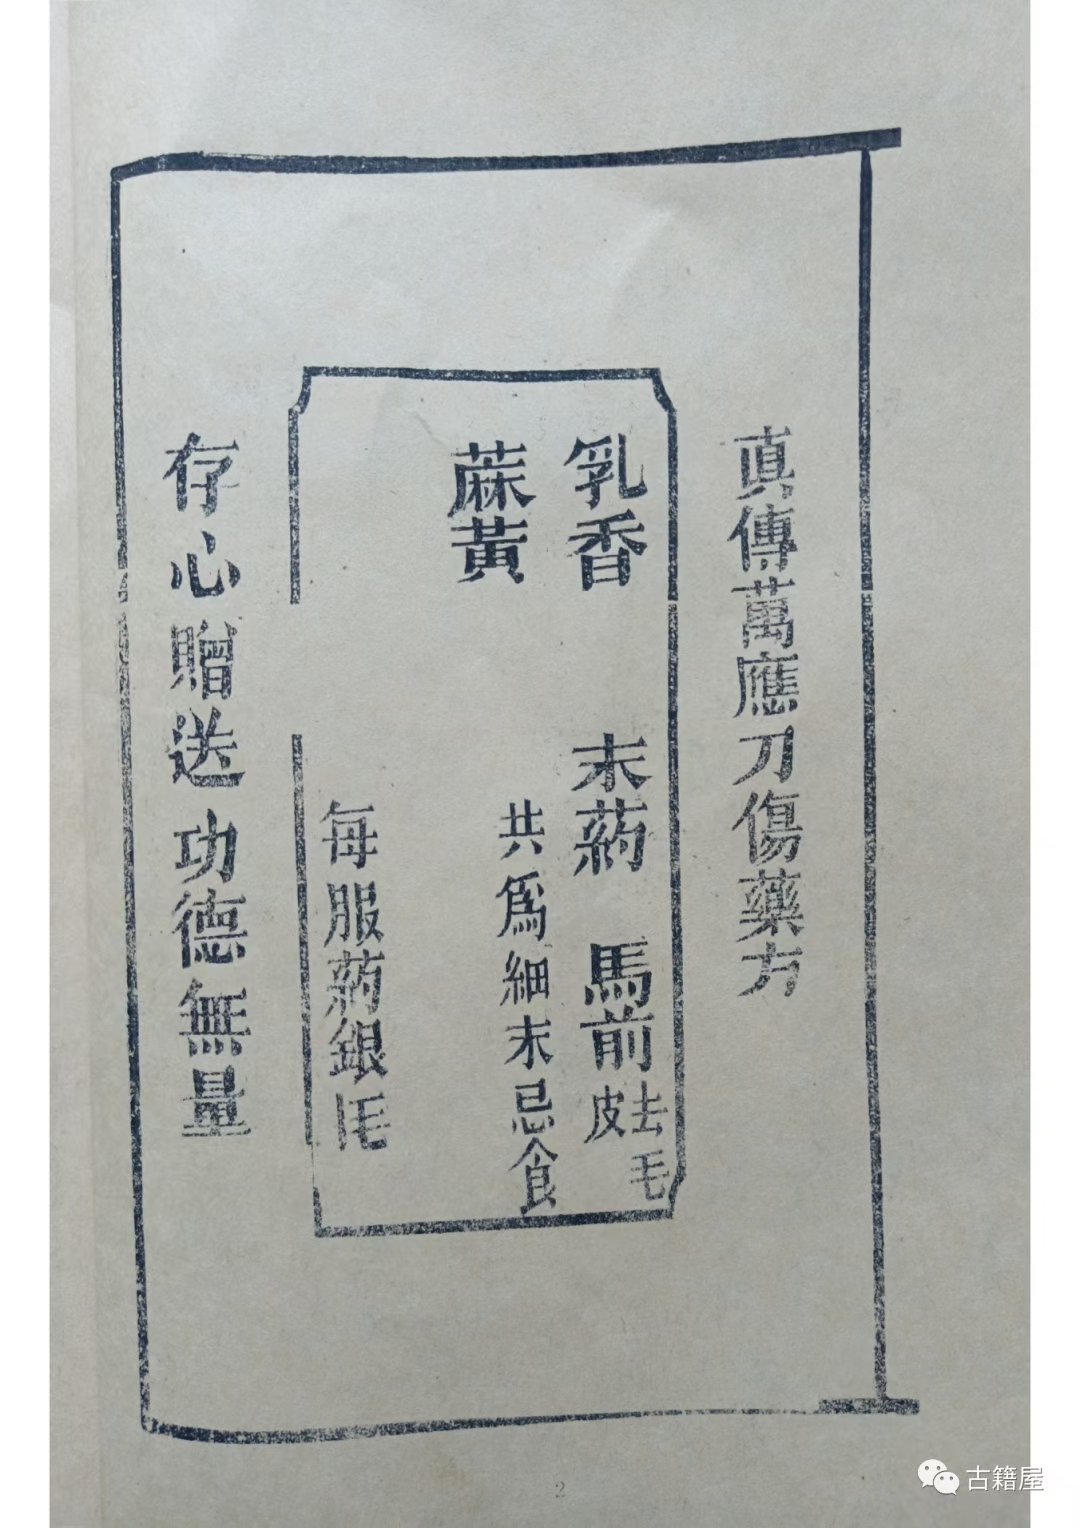 真傳萬應刀傷藥方
乳香 末葯 馬前去毛皮
蔴黃 共爲細末忌食
每服葯銀
存心贈送功德無量
2
古籍屋